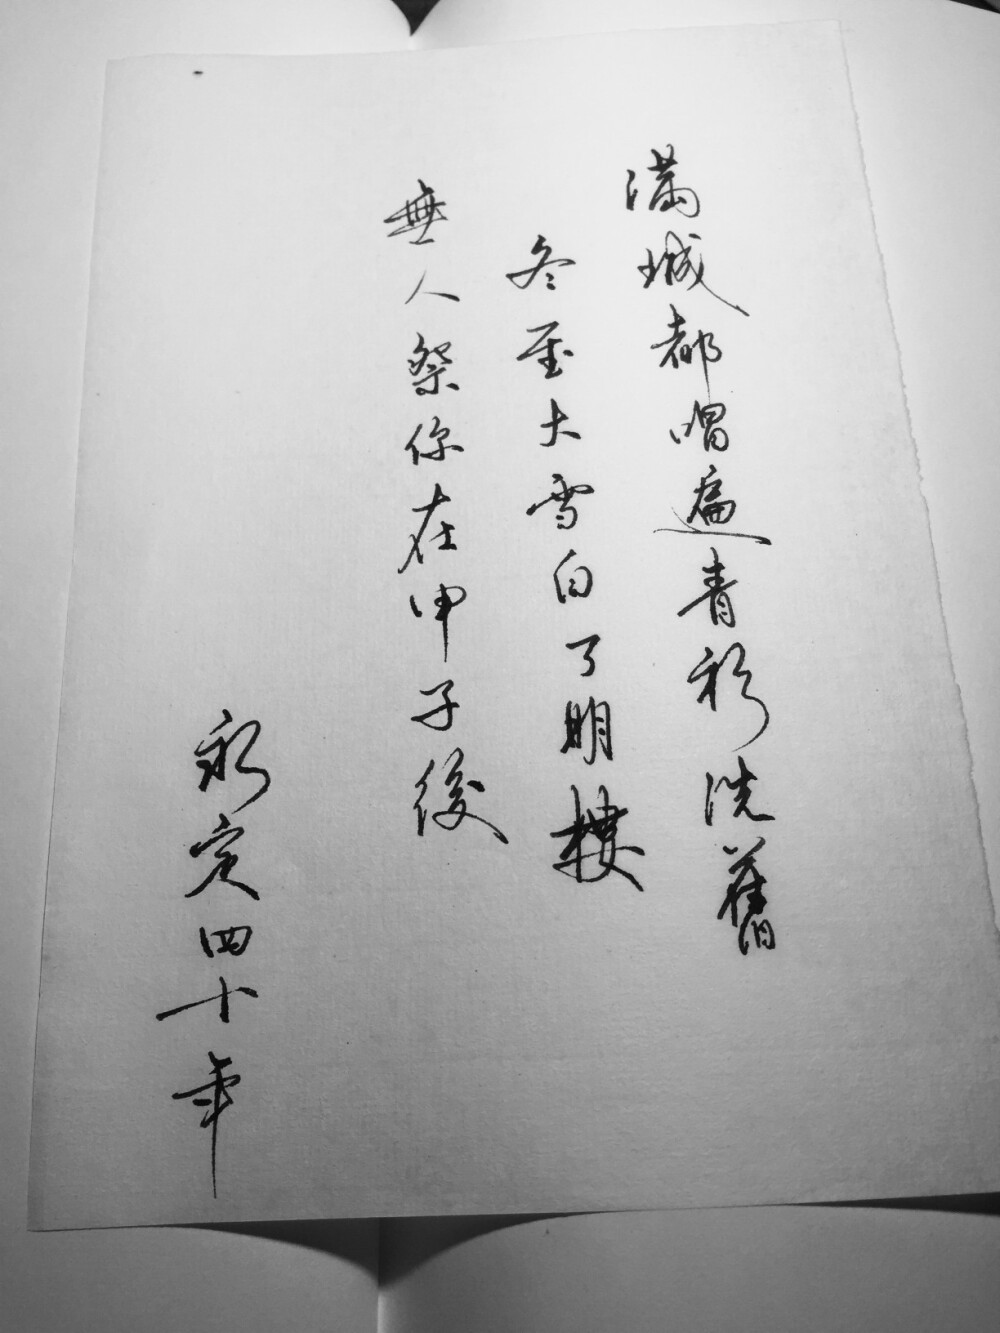 滿城都唱遍青衫洗舊
冬至大雪白了明樓
無人祭你在申子後
永定四十年